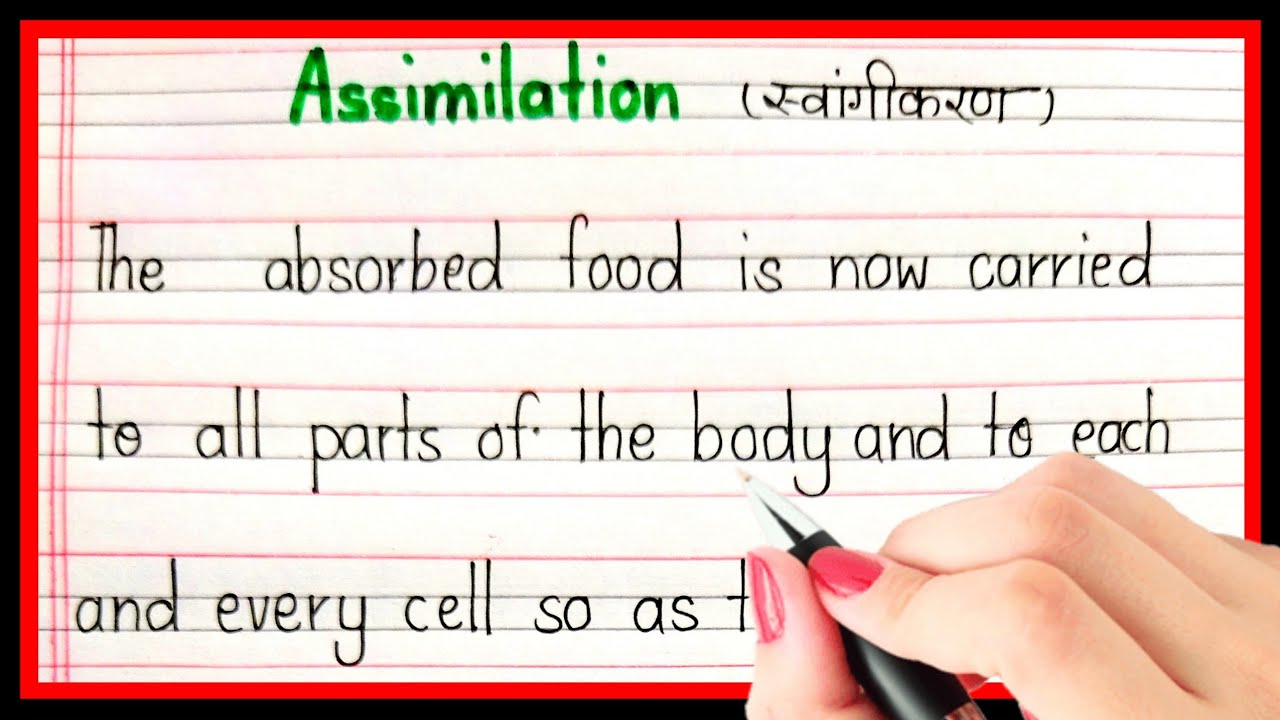 Assimilation (स्वांगीकरण)
The absorbed food is now carried
to all parts of the body and to each
and every cell so as t